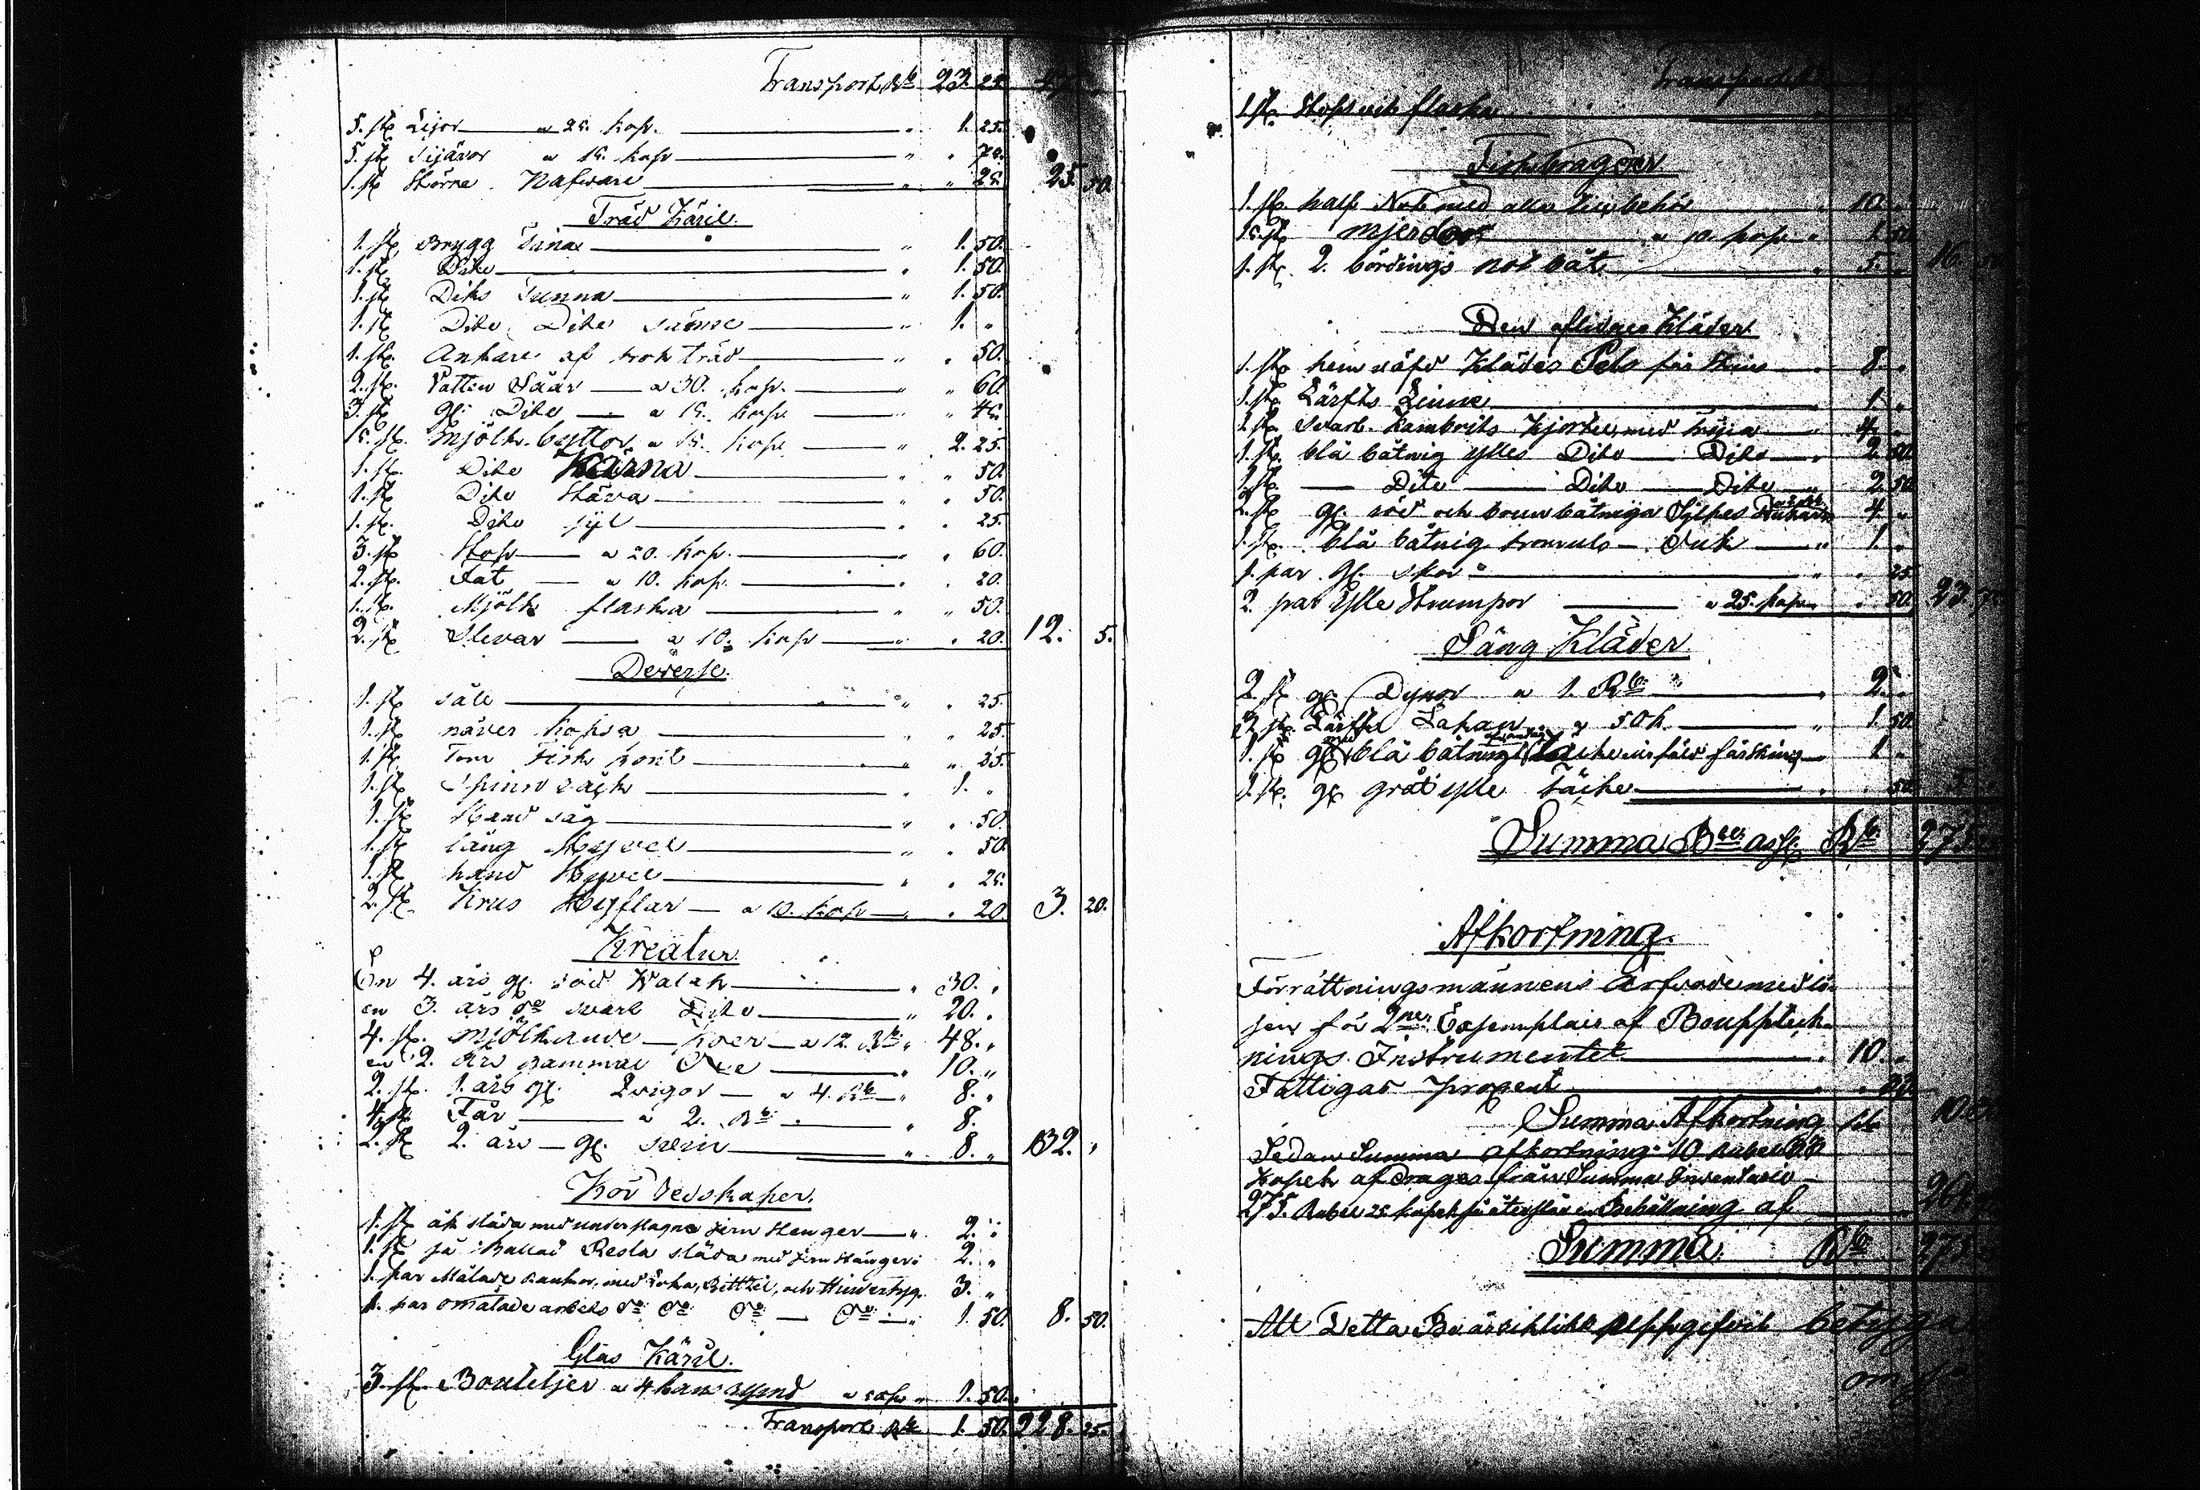 Transport Rb 23. 25. 47.
5. st. Lijor a 25. kop. " 1. 25.
5. st. Sijäror a 15. kop " " 75.
1. st. större Nafvare " " 25. 25. 50.
Träd Käril.
1. st. Brygg Tina " 1. 50.
1. st. Dito " 1. 50.
1. st. Diks Tunna " 1. 50.
1. st. Dito Dito sämre " 1. "
1. st. Ankare af trä " " 50.
2. st. Vatten Såar a 30. kop. " " 60.
3. st. gl. Dito a 15. kop. " " 45.
15. st. Mjölk byttor a 15. kop " 2. 25.
1. st. Dito Kärna " " 50.
1. st. Dito Stäva " " 50.
1. st. Dito sijl " " 25.
3. st. Stop a 20. kop. " " 60.
2. st. Fat a 10. kop. " " 20.
1. st. Mjölk flaska " " 50.
2. st. Slevar a 10. kop " " 20. 12. 5.
Deverse.
1. st. såll " " 25.
1. st. näver kopsa " " 25.
1. st. Tom Fisk kont " " 25.
1. st. Spinn räck " 1. "
1. st. Hand såg " " 50.
1. st. lång Hyvel " " 50.
1. st. hand Hyvel " " 25.
2. st. Krus Hyflar a 10. kop " " 20. 3. 20.
Kreatur.
En 4. års gl. röd Valak " 30. "
en 3. års do svart Dito " 20. "
4. st. Mjölkande Koer a 12. Rb " 48. "
en 2. års gammal Oxe " 10. "
2. st. 1. års gl. Qvigor a 4. Rb " 8. "
4. st. Får a 2. Rb " 8.
2. st. 2. års gl. svin " 8. " 132. "
Kör Redskaper.
1. st. åk släda med underslagne Jern stenger " 2. "
1. st. Resla släda med Jern stänger 2. "
1. par Målade rankor, med Loka, Bittzel, och Hindertyg. 3. "
1. par omålade arbets do do do do 1. 50. 8. 50.
Glas Käril.
3. st. Bouteljer a 4 a 50k " 1. 50.
Transport Rb 1. 50. 228. 25.
Transport
1 st. Stops och flaska
Fiskbragder
1. st. half Not med alla tillbehör " 10. "
15. st. Mjerdor a 10. kop. " 1. 50
1. st. 2. bördings not båt " 5. " 16.
Den aflidnes Kläder.
1. st. hem väfd Klädes Pels får skins " 8. "
1. st. Lärfts Linne " 1. "
1. st. Svart Kambrits Kjortel med tröja " 4. "
1. st. blå båtnig ylles Dito Dito " 2. 50
1. st. Dito Dito Dito " 2. 50
2. st. gl. röd och brun båtniga Sylkes " 4. "
1. st. blå båtnig bomuls Duk " 1. "
1. par gl. skor " " 25
2. par Ylle Strumpor a 25. kop. " " 50 23.
Säng Kläder
2. st. gl. Dynor a 1. Rb " 2. "
3 st. Lärfts Lakan a 50 k. " 1. 50.
1. st. gl. blå båtnigt täcke får skins 1 "
1. st. gl. gråt ylle täcke " " 50. 5.
Summa Rb 275.
Afkortning.
Förrättningsmännens Arfvode med lö-
sen för 2ne Exemplair af Boupptek-
nings Instrumentet " 10. "
Fattigas procent " "
Summa Afkortning Rb 10
Sedan Summa afkortning 10 rubel
Kopek af drages från Summa Inventario
275. Rubel 25 kopek så återstår en Behållning af 264
Summa Rb 275
Att Detta är riktigt uppgifvit betygar